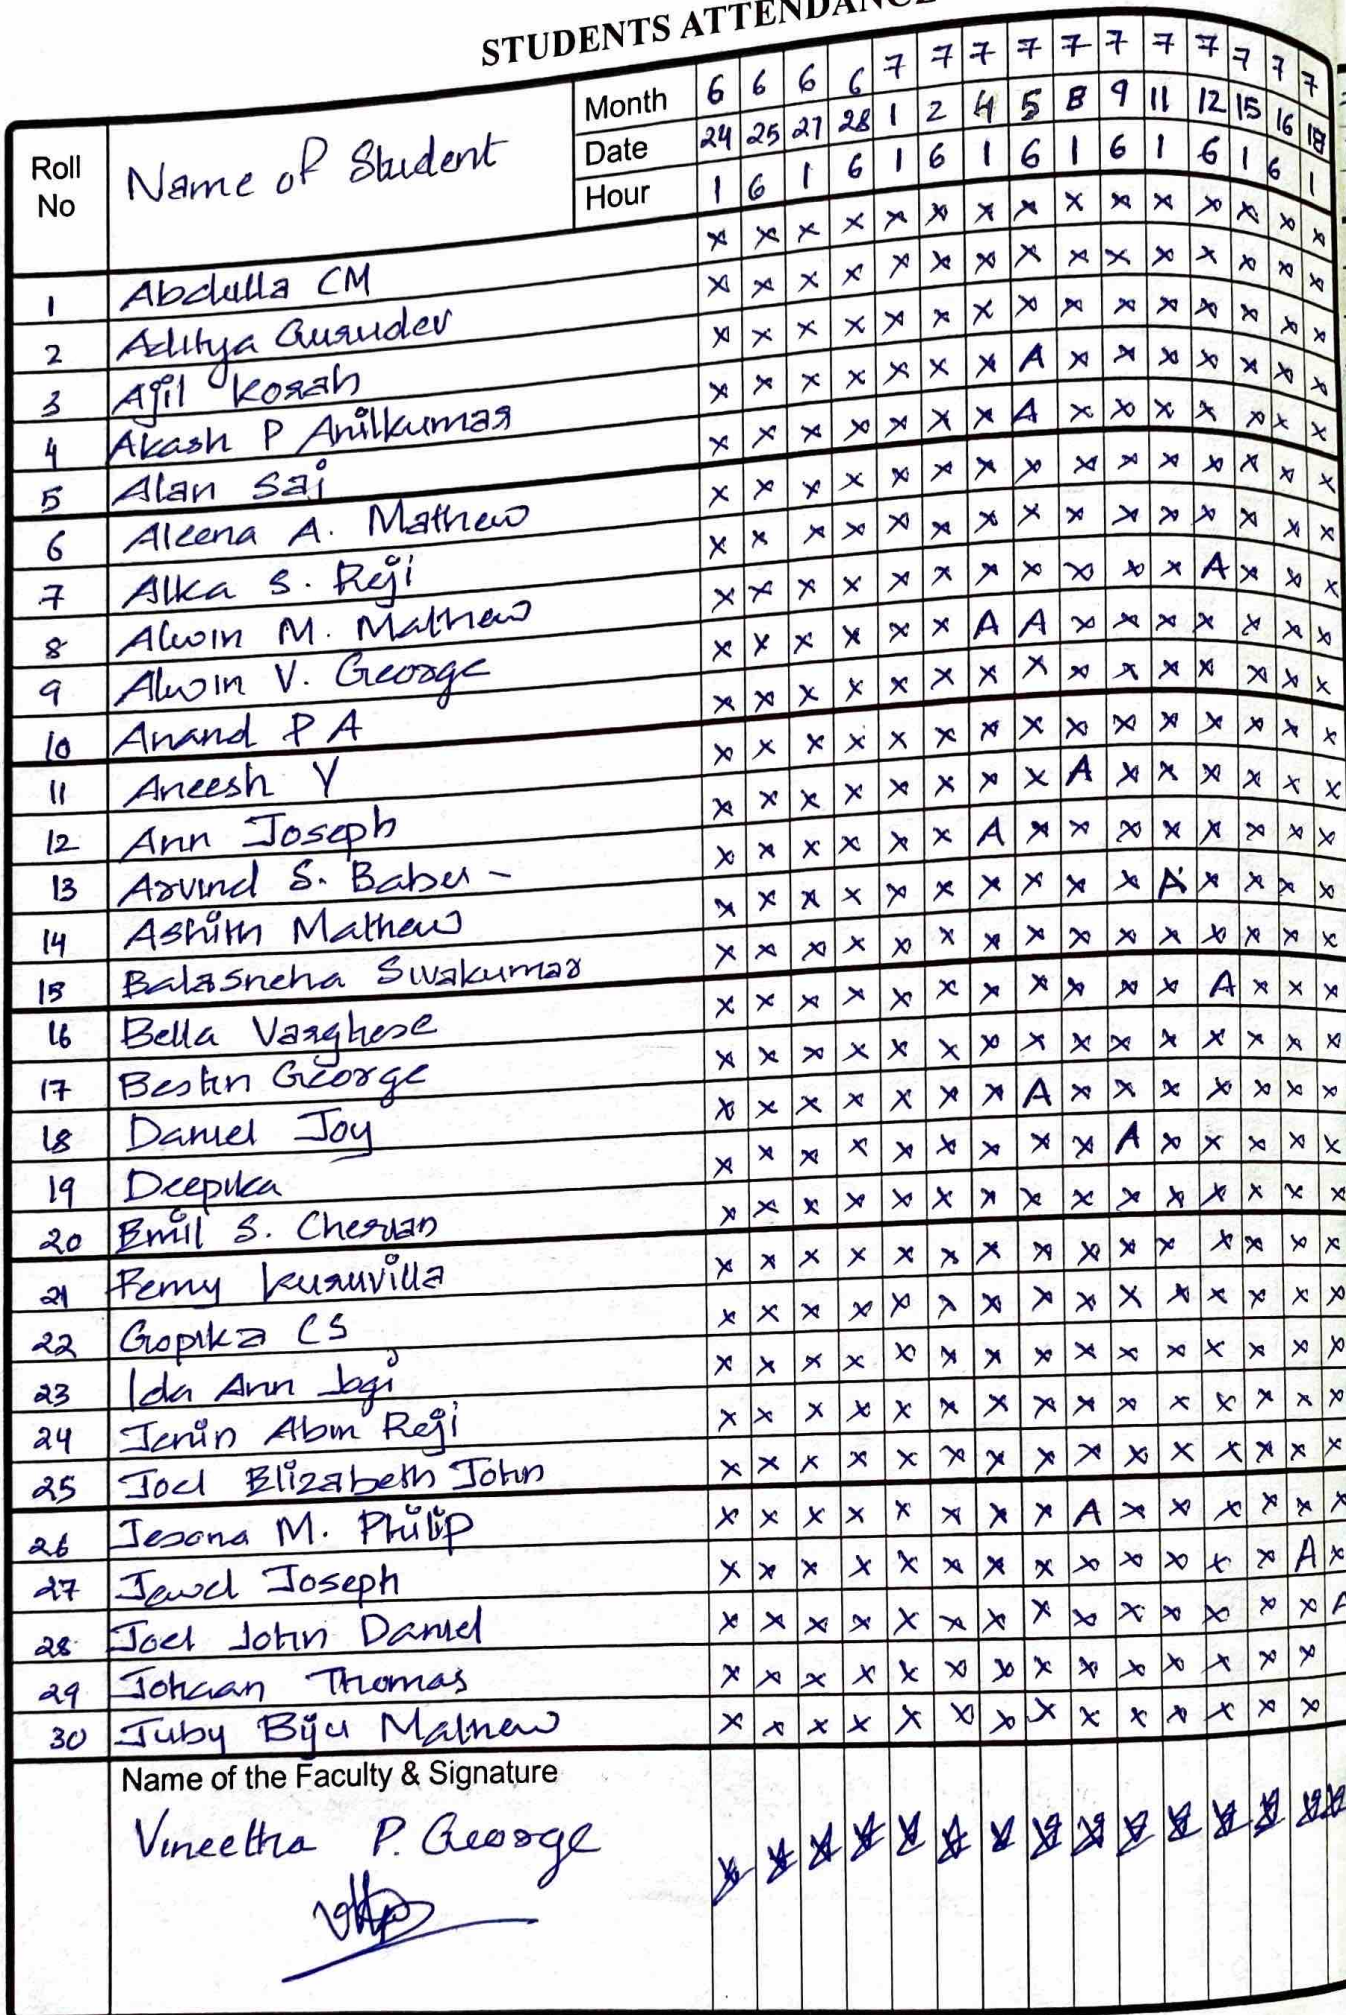 STUDENTS ATTENDANCE
Roll No Name of Student Month 6 6 6 6 7 7 7 7 7 7 7 7 7 7 7
Date 24 25 27 28 1 2 4 5 8 9 11 12 15 16 18
Hour 1 6 1 6 1 6 1 6 1 6 1 6 1 6 1
1 Abdulla CM x x x x x x x x x x x x x x x
2 Aditya Gurudev x x x x x x x x x x x x x x x
3 Ajil Korah x x x x x x x x x x x x x x x
4 Akash P Anilkumar x x x x x x x A x x x x x x x
5 Alan Saj x x x x x x x A x x x x x x x
6 Aleena A. Mathew x x x x x x x x x x x x x x x
7 Alka S. Reji x x x x x x x x x x x x x x x
8 Alwin M. Mathew x x x x x x x x x x x A x x x
9 Alwin V. George x x x x x x A A x x x x x x x
10 Anand P A x x x x x x x x x x x x x x x
11 Aneesh Y x x x x x x x x x x x x x x x
12 Ann Joseph x x x x x x x x A x x x x x x
13 Arvind S. Babu - x x x x x x A x x x x x x x x
14 Ashith Mathew x x x x x x x x x x A x x x x
15 Balasneha Sivakumar x x x x x x x x x x x x x x x
16 Bella Varghese x x x x x x x x x x x A x x x
17 Bestin George x x x x x x x x x x x x x x x
18 Daniel Joy x x x x x x x A x x x x x x x
19 Deepika x x x x x x x x x A x x x x x
20 Emil S. Cherian x x x x x x x x x x x x x x x
21 Femy Kuruvilla x x x x x x x x x x x x x x x
22 Gopika CS x x x x x x x x x x x x x x x
23 Ida Ann Jogi x x x x x x x x x x x x x x x
24 Jenin Abin Reji x x x x x x x x x x x x x x x
25 Joel Elizabeth John x x x x x x x x x x x x x x x
26 Jesona M. Philip x x x x x x x x A x x x x x x
27 Jewel Joseph x x x x x x x x x x x x x A x
28 Joel John Daniel x x x x x x x x x x x x x x A
29 Johaan Thomas x x x x x x x x x x x x x x
30 Juby Biju Mathew x x x x x x x x x x x x x x
Name of the Faculty & Signature
Vineetha P. George